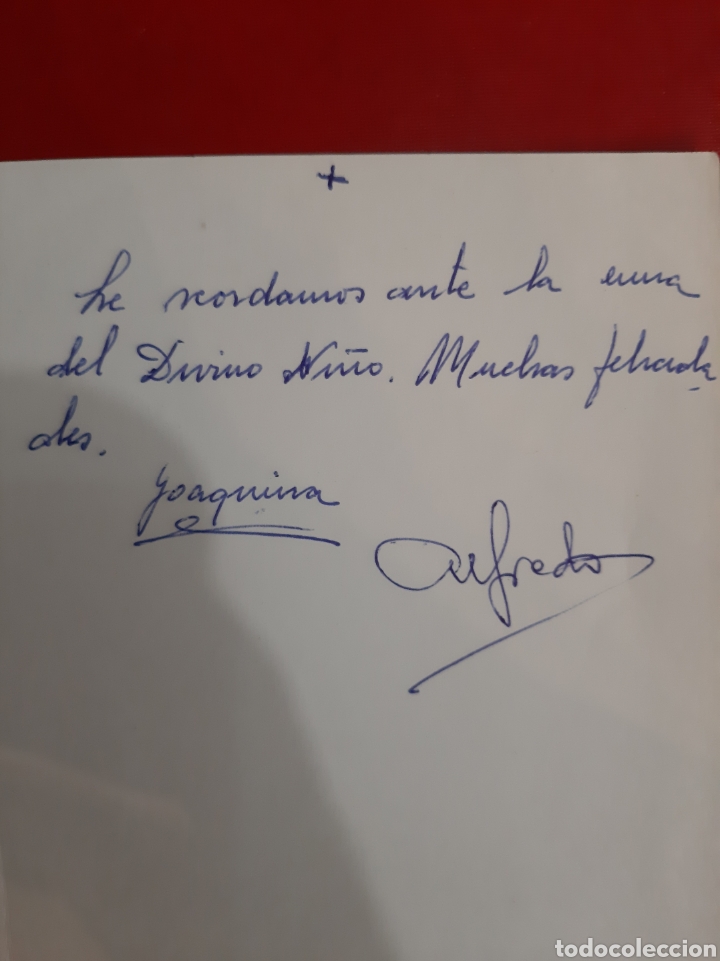 +
Le recordamos ante la cuna
del Divino Niño. Muchas felicida
des.
Joaquina
Alfredo
todocoleccion